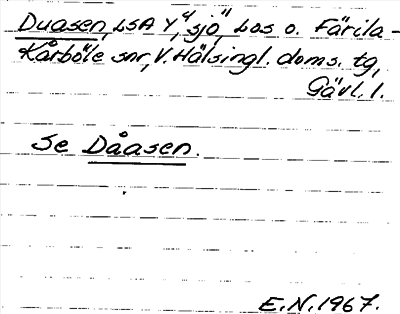 Duasen, LSA Y4, sjö, Los o. Färila-
Kårböle snr, V. Hälsingl. doms. tg,
Gävl. l.
Se Dåasen.
E.N. 1967.